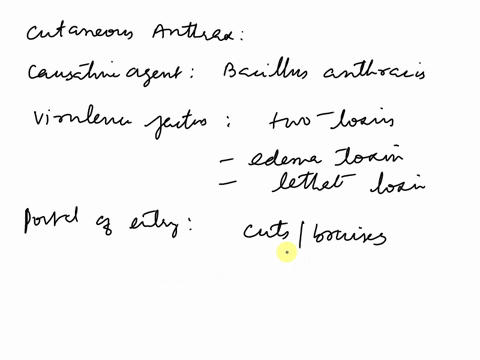 Cutaneous Anthrax:
Causative agent: Bacillus anthracis
Virulence factors: two-toxins
- edema toxin
- lethal toxin
Portal of entry: cuts/bruises